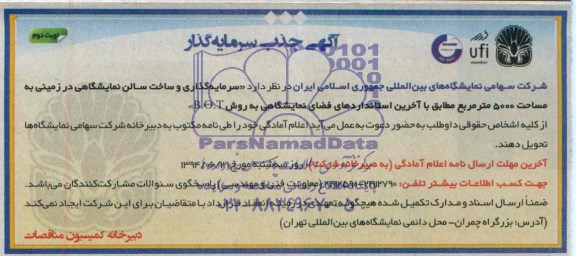 نوبت دوم
آگهی جذب سرمایه‌گذار
ufi
member
شرکت سهامی نمایشگاه‌های بین‌المللی جمهوری اسلامی ایران در نظر دارد «سرمایه‌گذاری و ساخت سالن نمایشگاهی در زمینی به
مساحت ۵۰۰۰ مترمربع مطابق با آخرین استانداردهای فضای نمایشگاهی به روش B.O.T»
از کلیه اشخاص حقوقی داوطلب به حضور دعوت به عمل می‌آید اعلام آمادگی خود را طی نامه مکتوب به دبیرخانه شرکت سهامی نمایشگاه‌ها
تحویل دهند.
آخرین مهلت ارسال نامه اعلام آمادگی (به دبیرخانه شرکت) روز سه‌شنبه مورخ
جهت کسب اطلاعات بیشتر تلفن: (معاونت فنی و مهندسی) پاسخگوی سئوالات مشارکت‌کنندگان می‌باشد.
ضمناً ارسال اسناد و مدارک تکمیل شده هیچگونه تعهدی در انعقاد قرارداد با متقاضیان برای این شرکت ایجاد نمی‌کند
(آدرس: بزرگراه چمران- محل دائمی نمایشگاه‌های بین‌المللی تهران)
دبیرخانه کمیسیون مناقصات
ParsNamadData